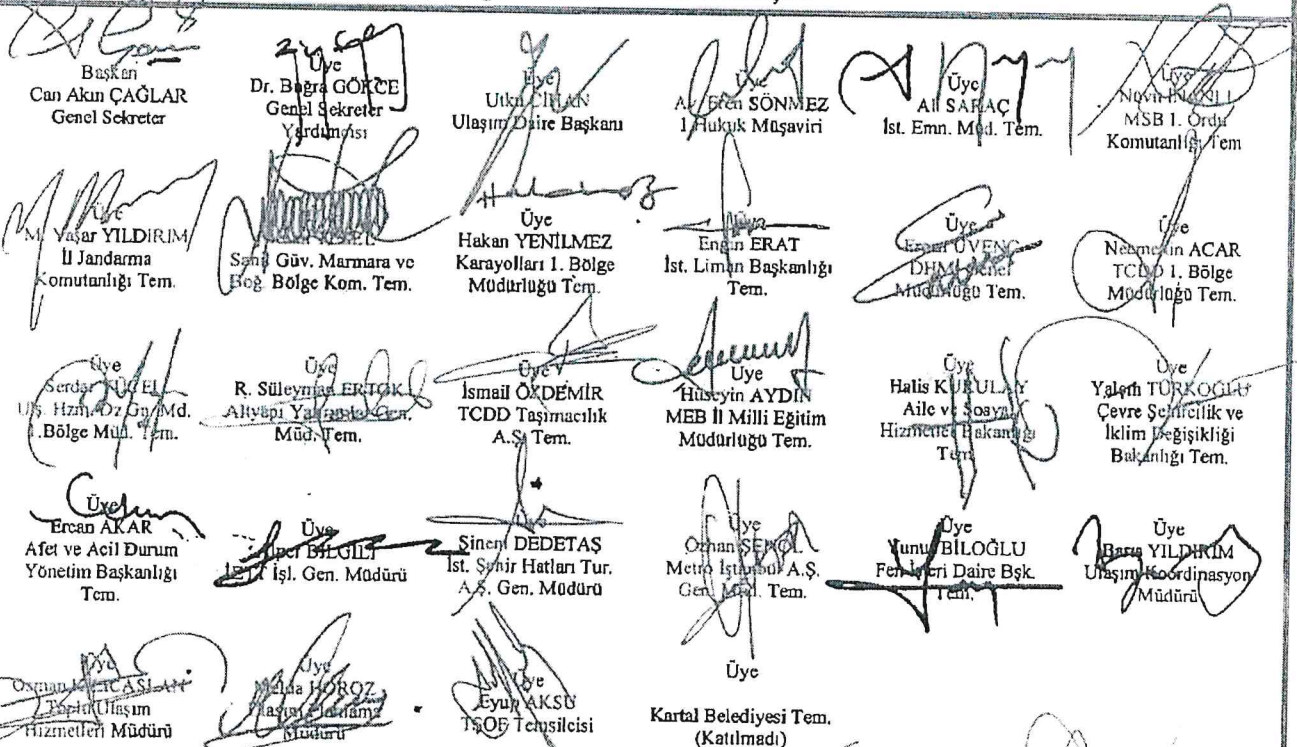 Başkan
Can Akın ÇAĞLAR
Genel Sekreter
Üye
Dr. Buğra GÖKCE
Genel Sekreter
Yardımcısı
Üye
Utku CİHAN
Ulaşım Daire Başkanı
Üye
Av. Eren SÖNMEZ
1.Hukuk Müşaviri
Üye
Ali SARAÇ
İst. Emn. Müd. Tem.
Üye
MSB 1. Ordu
Komutanlığı Tem
Üye
M. Yaşar YILDIRIM
İl Jandarma
Komutanlığı Tem.
Sahil Güv. Marmara ve
Boğ. Bölge Kom. Tem.
Üye
Hakan YENİLMEZ
Karayolları 1. Bölge
Müdürlüğü Tem.
Üye
Engin ERAT
İst. Liman Başkanlığı
Tem.
Üye
DHMİ Genel
Müdürlüğü Tem.
Üye
Necmettin ACAR
TCDD 1. Bölge
Müdürlüğü Tem.
Üye
Serdar YÜCEL
Ulş. Hzm. Dz Gn. Md.
1.Bölge Müd. Tem.
Üye
R. Süleyman ERTOK
Altyapı Gen.
Müd. Tem.
Üye
İsmail ÖZDEMİR
TCDD Taşımacılık
A.Ş. Tem.
Üye
Hüseyin AYDIN
MEB İl Milli Eğitim
Müdürlüğü Tem.
Üye
Halis KURULAY
Aile ve Sosyal
Hizmetler Bakanlığı
Tem.
Üye
Yalçın TÜRKOĞLU
Çevre Şehircilik ve
İklim Değişikliği
Bakanlığı Tem.
Üye
Ercan AKAR
Afet ve Acil Durum
Yönetim Başkanlığı
Tem.
Üye
BİLGİLİ
İETT İşl. Gen. Müdürü
Sinem DEDETAŞ
İst. Şehir Hatları Tur.
A.Ş. Gen. Müdürü
Üye
Metro İstanbul A.Ş.
Gen. Müd. Tem.
Üye
Yunus BİLOĞLU
Fen İşleri Daire Bşk.
Tem.
Üye
Barış YILDIRIM
Ulaşım Koordinasyon
Müdürü
Üye
Osman
Toplu Ulaşım
Hizmetleri Müdürü
Üye
HOROZ
Ulaşım Planlama
Müdürü
Üye
Eyup AKSU
TŞOF Temsilcisi
Üye
Kartal Belediyesi Tem.
(Katılmadı)